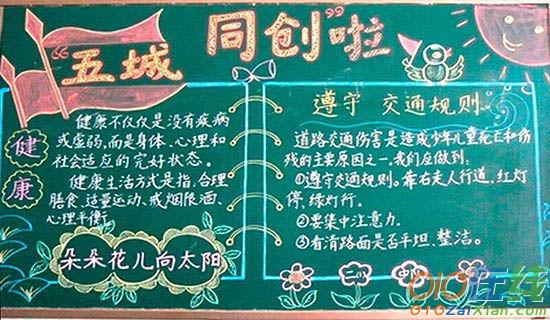 “五城 同创”啦
健康
健康不仅仅是没有疾病
或虚弱,而是身体、心理和
社会适应的完好状态。
健康生活方式是指,合理
膳食、适量运动、戒烟限酒、
心理平衡。
朵朵花儿向太阳
遵守 交通规则
道路交通伤害是造成少年儿童死亡和伤
残的主要原因之一,我们应做到:
①遵守交通规则。靠右走人行道,红灯
停,绿灯行。
②要集中注意力。
③看清路面是否平坦、整洁。
010在线
010zaixian.com